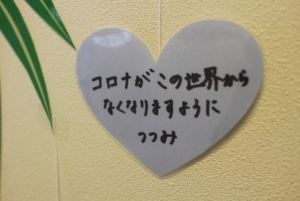 コロナがこの世界から
なくなりますように
つつみ